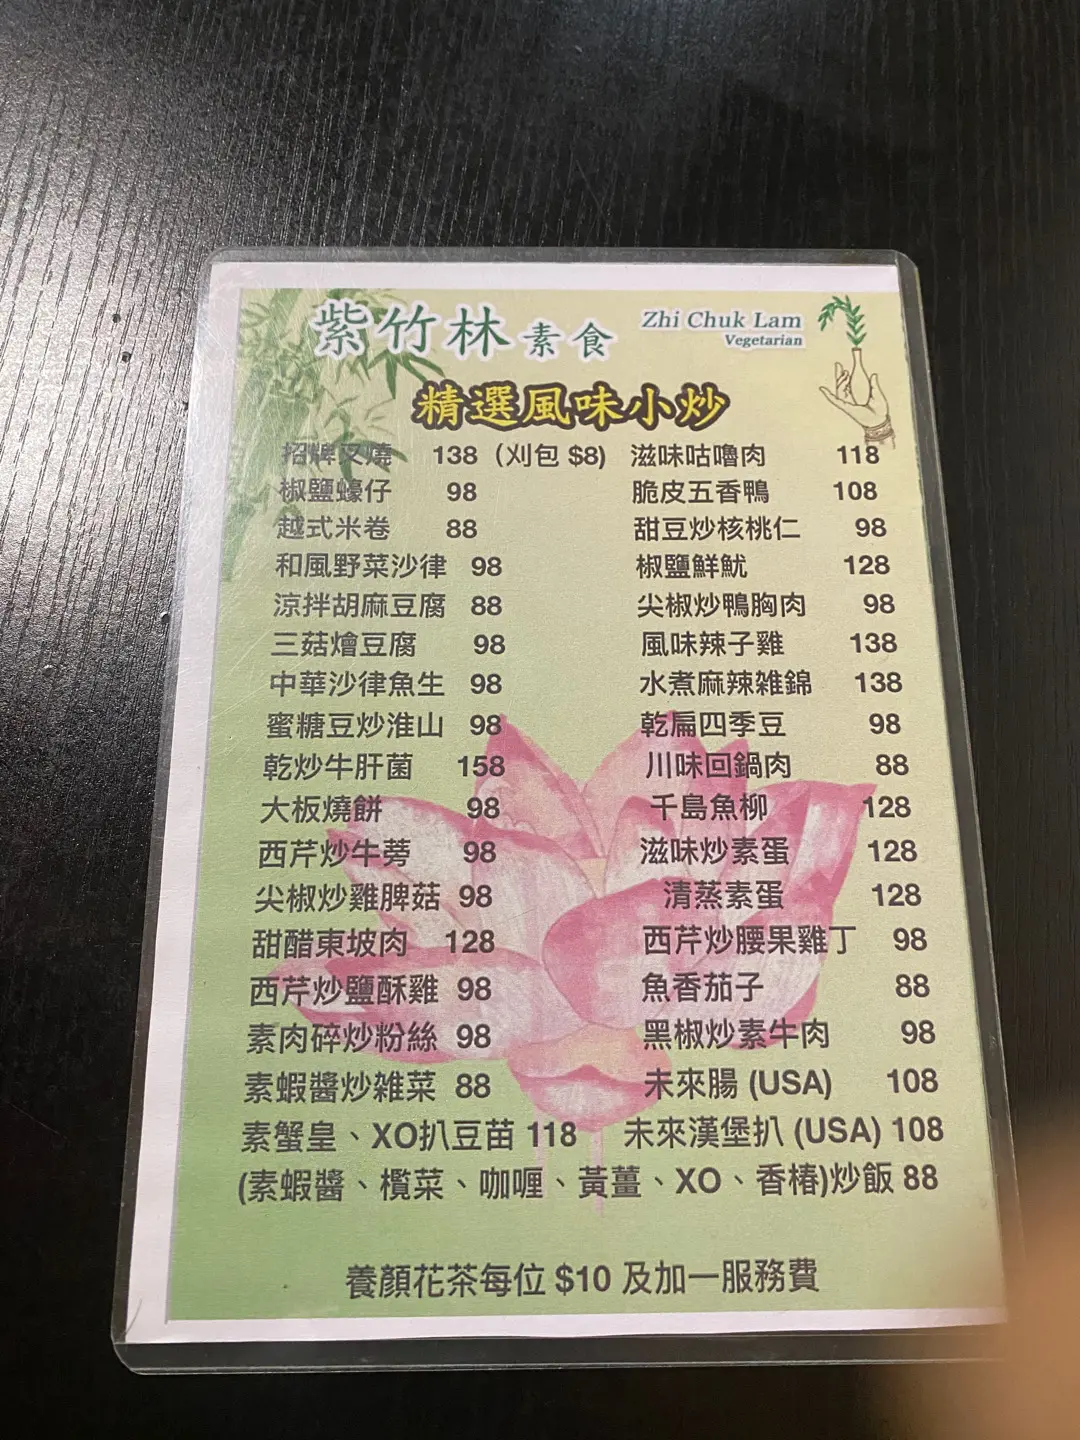 紫竹林素食 Zhi Chuk Lam
Vegetarian
精選風味小炒
招牌叉燒 138 (刈包 $8) 滋味咕嚕肉 118
椒鹽蠔仔 98 脆皮五香鴨 108
越式米卷 88 甜豆炒核桃仁 98
和風野菜沙律 98 椒鹽鮮魷 128
涼拌胡麻豆腐 88 尖椒炒鴨胸肉 98
三菇燴豆腐 98 風味辣子雞 138
中華沙律魚生 98 水煮麻辣雑錦 138
蜜糖豆炒淮山 98 乾扁四季豆 98
乾炒牛肝菌 158 川味回鍋肉 88
大板燒餅 98 千島魚柳 128
西芹炒牛蒡 98 滋味炒素蛋 128
尖椒炒雞脾菇 98 清蒸素蛋 128
甜醋東坡肉 128 西芹炒腰果雞丁 98
西芹炒鹽酥雞 98 魚香茄子 88
素肉碎炒粉絲 98 黑椒炒素牛肉 98
素蝦醬炒雑菜 88 未來腸 (USA) 108
素蟹皇、XO扒豆苗 118 未來漢堡扒 (USA) 108
(素蝦醬、欖菜、咖喱、黃薑、XO、香椿)炒飯 88
養顏花茶每位 $10 及加一服務費